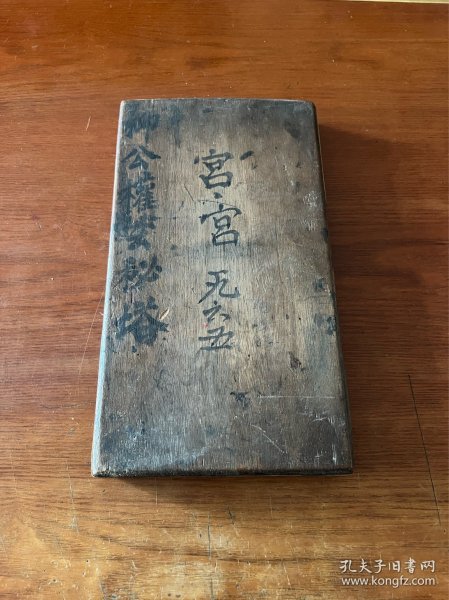 柳公權玄秘塔
宮宮
一九六五
孔夫子旧书网
www.kongfz.com